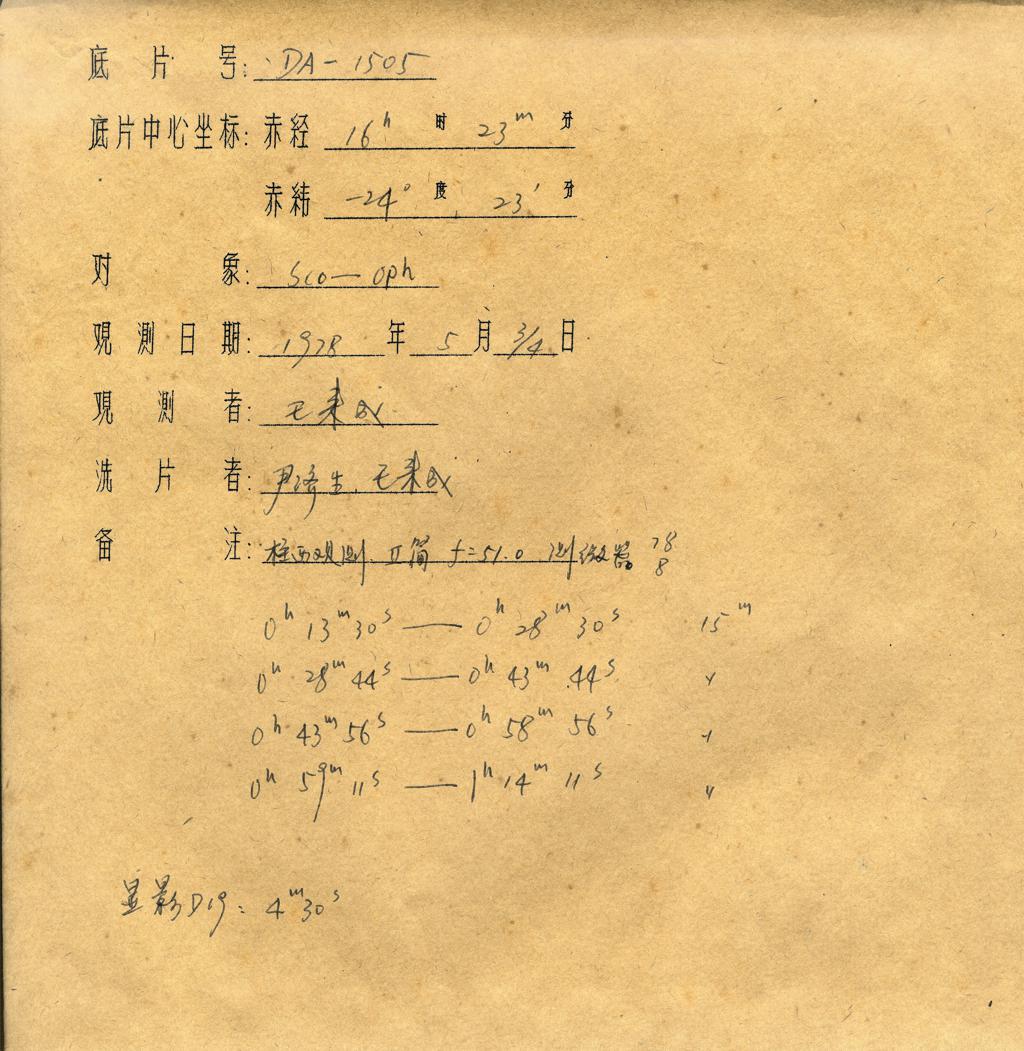 底片号: DA-1505
底片中心坐标: 赤经 16ʰ 时 23ᵐ 分
赤纬 -24° 度 23′ 分
对象: Sco — Oph
观测日期: 1978 年 5 月 3/4 日
观测者: 王来成
洗片者: 尹济生. 王来成
备注: 观测. II筒 f=51.0 测微器 78 8
0ʰ 13ᵐ 30ˢ — 0ʰ 28ᵐ 30ˢ 15ᵐ
0ʰ 28ᵐ 44ˢ — 0ʰ 43ᵐ 44ˢ 〃
0ʰ 43ᵐ 56ˢ — 0ʰ 58ᵐ 56ˢ 〃
0ʰ 59ᵐ 11ˢ — 1ʰ 14ᵐ 11ˢ 〃
显影D19: 4ᵐ30ˢ